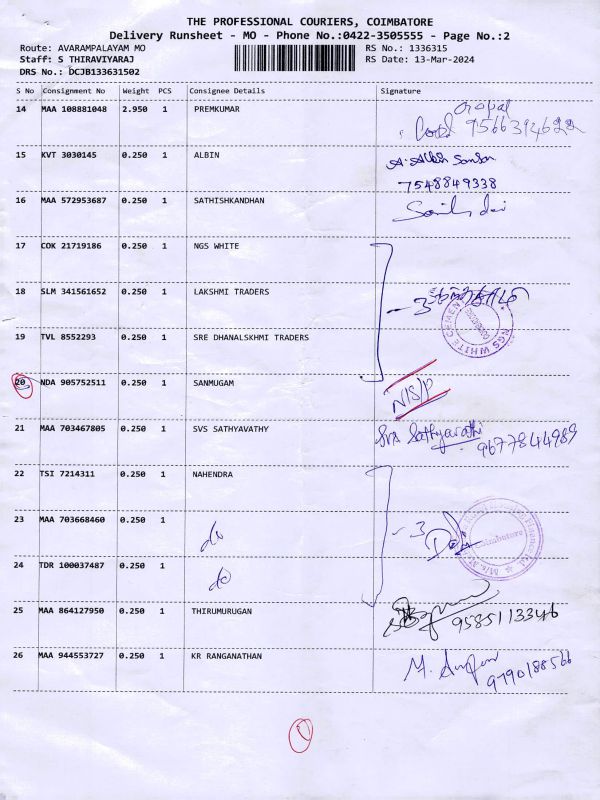 THE PROFESSIONAL COURIERS, COIMBATORE
Delivery Runsheet - MO - Phone No.:0422-3505555 - Page No.:2
Route: AVARAMPALAYAM MO
RS No.: 1336315
Staff: S THIRAVIYARAJ
RS Date: 13-Mar-2024
DRS No.: DCJB133631502
S No Consignment No Weight PCS Consignee Details Signature
14 MAA 108881048 2.950 1 PREMKUMAR
15 KVT 3030145 0.250 1 ALBIN
7548849338
16 MAA 572953687 0.250 1 SATHISHKANDHAN
17 COK 21719186 0.250 1 NGS WHITE
18 SLM 341561652 0.250 1 LAKSHMI TRADERS - 3
NGS WHITE CEMENT
19 TVL 8552293 0.250 1 SRE DHANALSKHMI TRADERS
20 NDA 905752511 0.250 1 SANMUGAM N/S/P
21 MAA 703467805 0.250 1 SVS SATHYAVATHY SVS Sathyavathi
9677844989
22 TSI 7214311 0.250 1 NAHENDRA
23 MAA 703668460 0.250 1 do - 3
Coimbatore
24 TDR 100037487 0.250 1 do
25 MAA 864127950 0.250 1 THIRUMURUGAN 9585113346
26 MAA 944553727 0.250 1 KR RANGANATHAN
9790188566
1